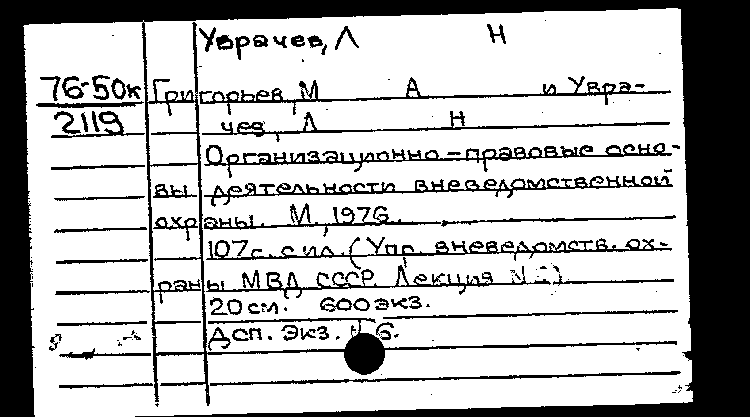 Уврачев, Л Н
76-50к Григорьев, М А и Увра-
2119 чев, Л Н
Организационно-правовые осно-
вы деятельности вневедомственной
охраны. М., 1976.
107с. с ил. (Упр. вневедомств. ох-
раны МВД СССР. Лекция №
20 см. 600 экз.
Дсп. Экз. № 6.